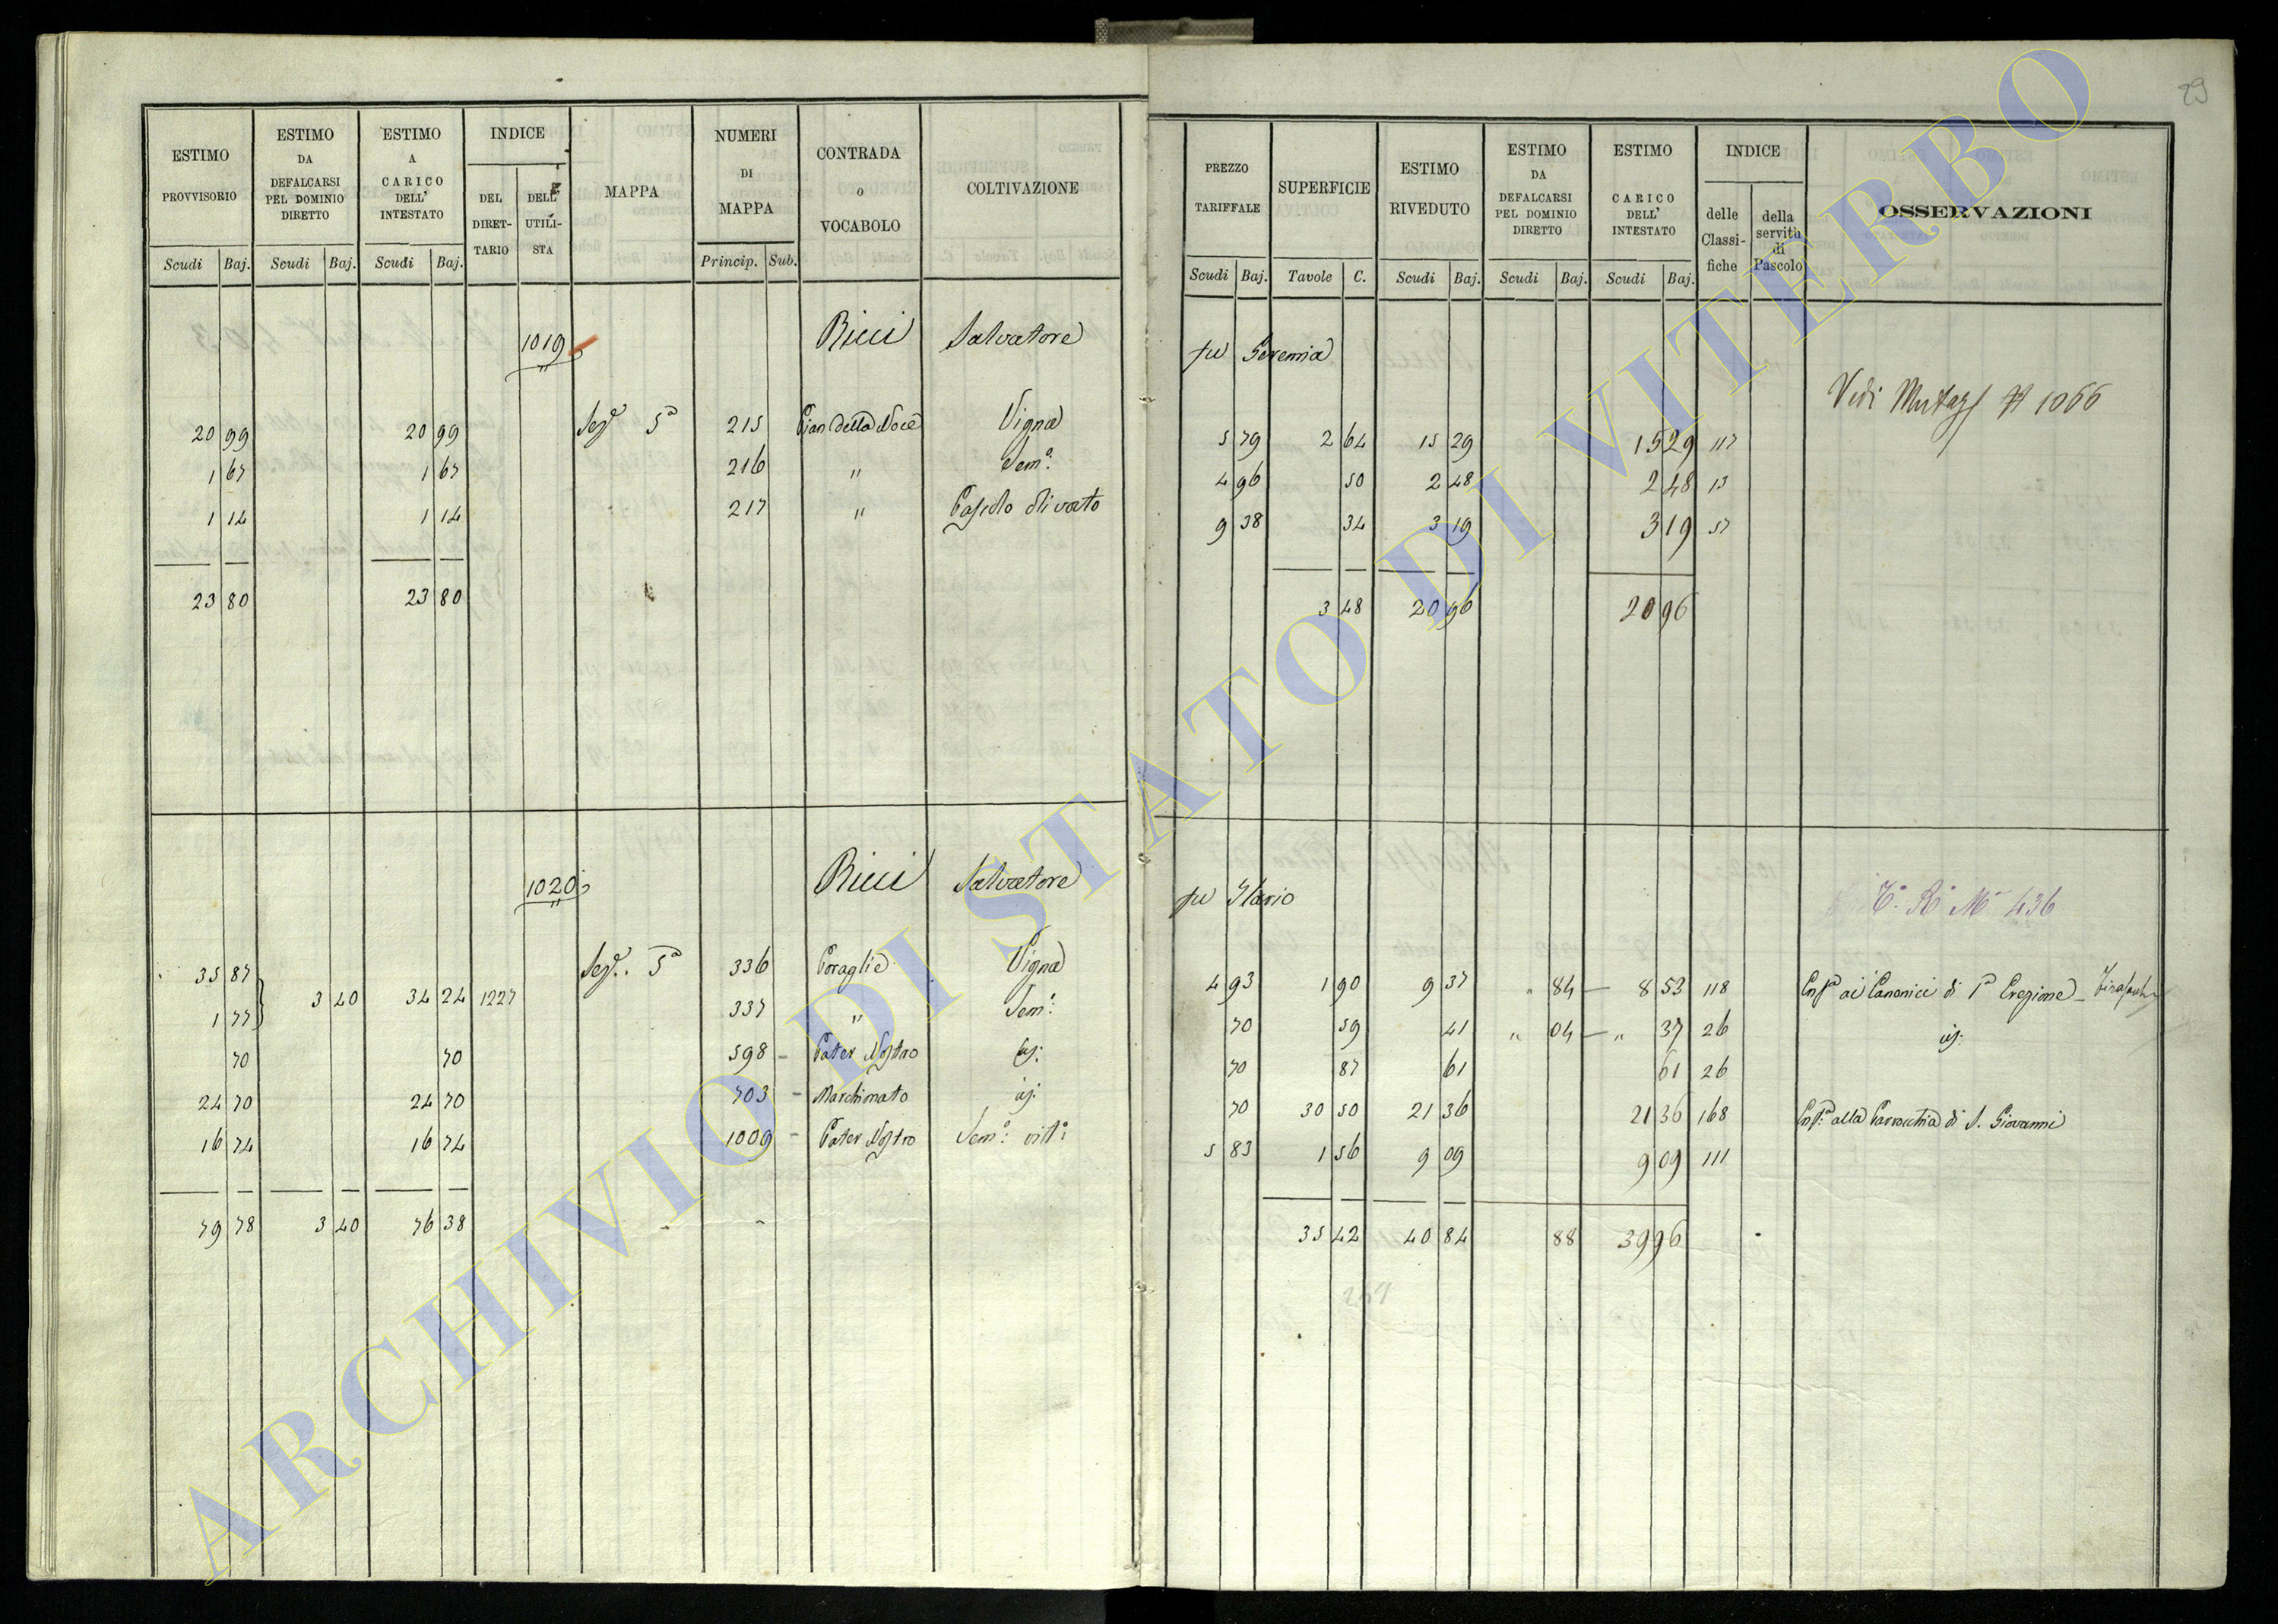 29
ESTIMO PROVVISORIO Scudi Baj.
ESTIMO DA DEFALCARSI PEL DOMINIO DIRETTO Scudi Baj.
ESTIMO A CARICO DELL' INTESTATO Scudi Baj.
INDICE DEL DIRETTARIO DELL' UTILISTA
MAPPA
NUMERI DI MAPPA Princip. Sub.
CONTRADA o VOCABOLO
COLTIVAZIONE
PREZZO TARIFFALE Scudi Baj.
SUPERFICIE Tavole C.
ESTIMO RIVEDUTO Scudi Baj.
ESTIMO DA DEFALCARSI PEL DOMINIO DIRETTO Scudi Baj.
ESTIMO CARICO DELL' INTESTATO Scudi Baj.
INDICE delle Classifiche della servitù di Pascolo
OSSERVAZIONI
1019 Ricci Salvatore fu Geremia
Vedi 1066
20 99 20 99 Sez.e 5a 215 Pian della Noce Vigna 5 79 2 64 15 29 15 29 117
1 67 1 67 216 " Sem.o 4 96 50 2 48 2 48 13
1 14 1 14 217 " Pascolo olivato 9 38 34 3 19 3 19 57
23 80 23 80 3 48 20 96 20 96
1020 Ricci Salvatore fu Ilario
436
35 87 Sez.e 5a 336 Poraglie Vigna 4 93 1 90 9 37 " 84 8 53 118 Enf.a ai Canonici di 1a Erezione
3 40 34 24 1227
1 77 337 " Sem.o 70 59 41 " 04 " 37 26 id.
70 70 598 Pater Nostro id. 70 87 61 61 26
24 70 24 70 703 Marchionato id. 70 30 50 21 36 21 36 168 Enf.a alla Parrocchia di S. Giovanni
16 74 16 74 1009 Pater Nostro Sem.o vit.o 5 83 1 56 9 09 9 09 111
79 78 3 40 76 38 35 42 40 84 88 39 96
ARCHIVIO DI STATO DI VITERBO